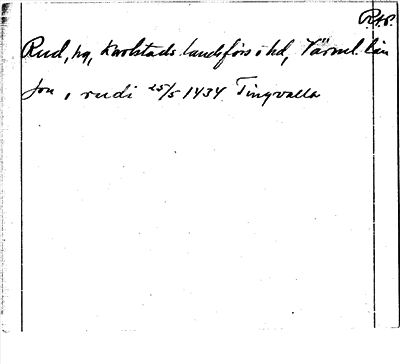 RAP.
Rud, hg, Karlstads landsförs o hd, Värml. län
Jon, i rudi 25/5 1434 Tingvalla